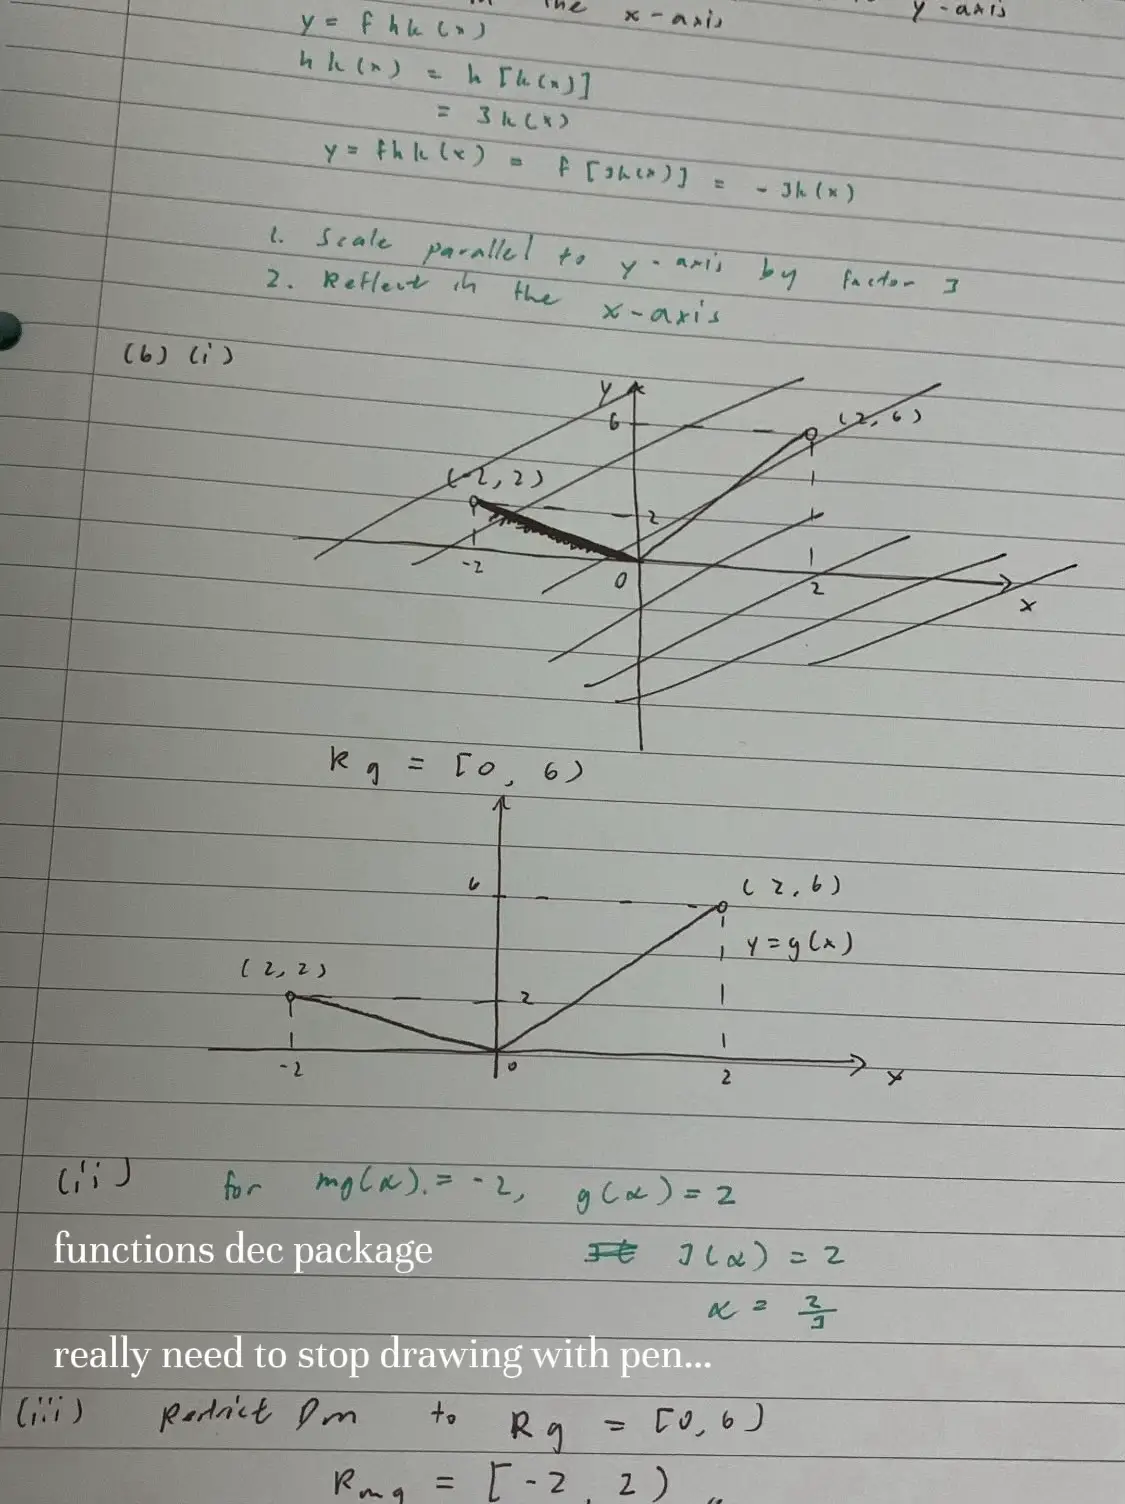 the x-axis y-axis
y = fhk(x)
hk(x) = h[k(x)]
= 3k(x)
y = fhk(x) = f[3k(x)] = -3k(x)
1. Scale parallel to y-axis by factor 3
2. Reflect in the x-axis
(b) (i)
y
6
(2, 6)
(-2, 2)
2
-2
0
2
x
Rg = [0, 6)
6
(2, 6)
y = g(x)
(2, 2)
2
-2
0
2
x
(ii) for mg(α) = -2, g(α) = 2
functions dec package
3(α) = 2
α = 2/3
really need to stop drawing with pen...
(iii) Restrict Dm to Rg = [0, 6)
Rmg = [-2, 2)